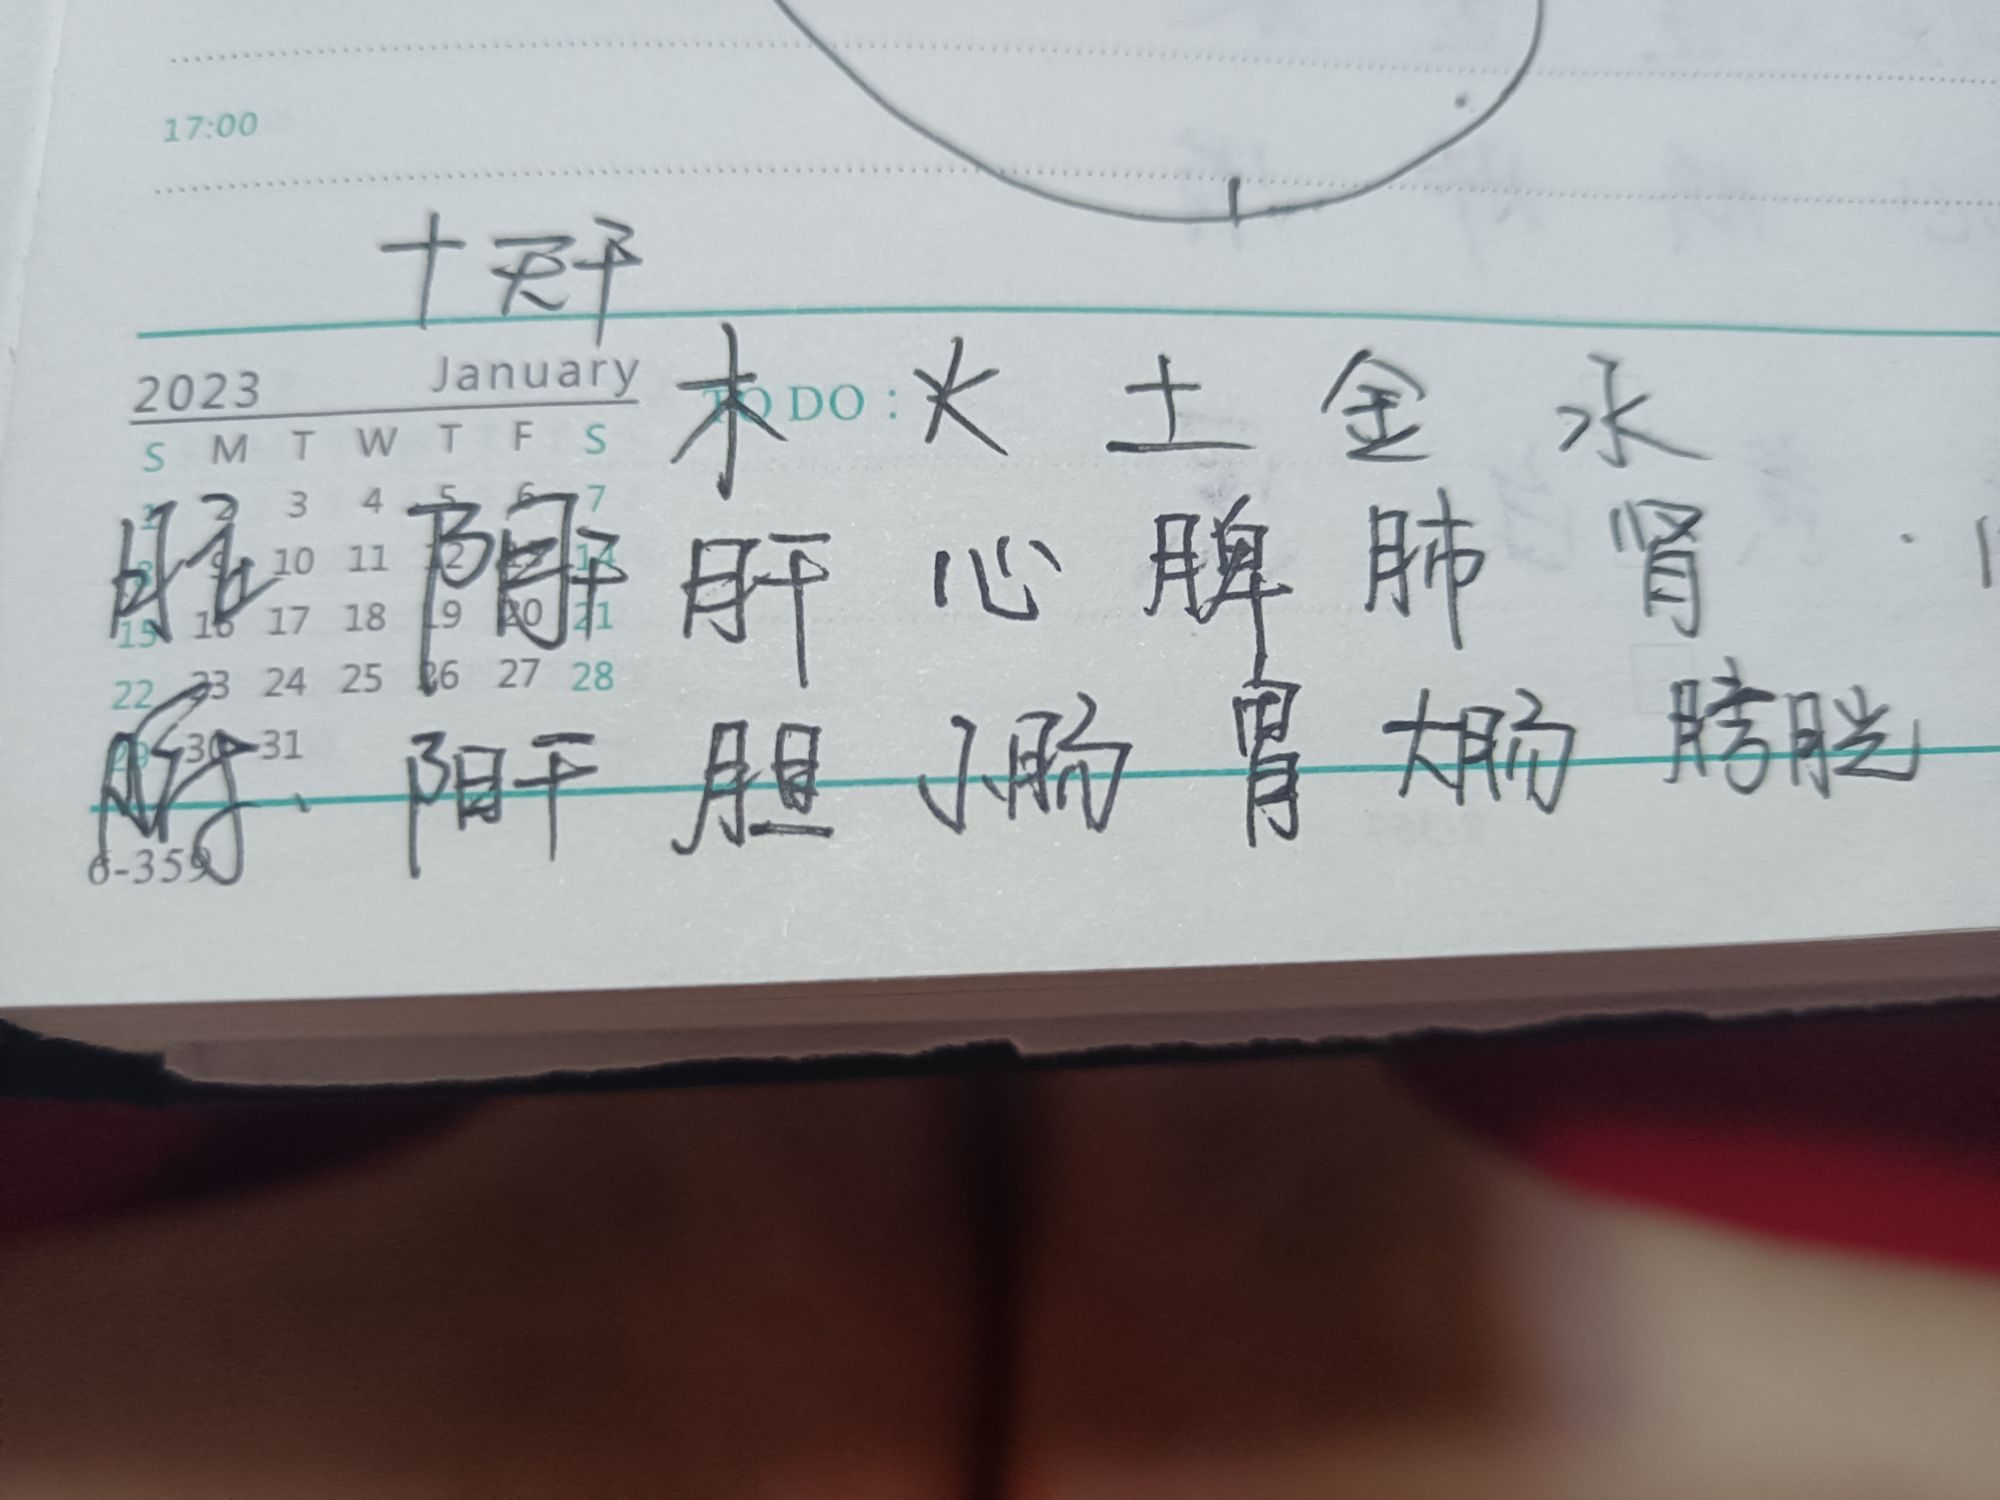 17:00
十天干
2023 January TO DO： 木 火 土 金 水
S M T W T F S
1 2 3 4 5 6 7
脏 阴干 肝 心 脾 肺 肾
8 9 10 11 12 13 14
15 16 17 18 19 20 21
22 23 24 25 26 27 28
29 30 31
腑、 阳干 胆 小肠 胃 大肠 膀胱
6-359